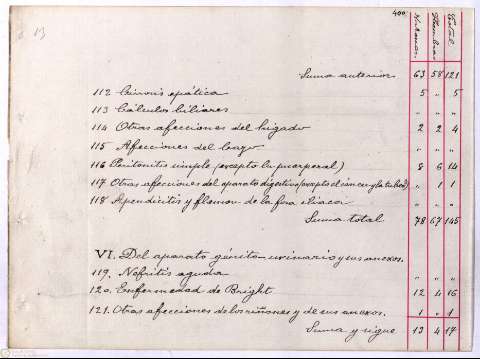 13
400
Varones Hembras Total
Suma anterior 63 58 121
112 Cirrosis epática 5 " 5
113 Cálculos biliares " " "
114 Otras afecciones del higado 2 2 4
115 Afecciones del bazo " " "
116 Peritonitis simple (excepto la puerperal) 8 6 14
117 Otras afecciones del aparato digestivo (excepto el cáncer y la tuberc) " 1 1
118 Apendicitis y flemon de la fosa iliaca " " "
Suma total 78 67 145
VI. Del aparato génito-urinario y sus anexos.
119. Nefritis aguda " " "
120. Enfermedad de Bright 12 4 16
121. Otras afecciones de los riñones y de sus anexos. 1 " 1
Suma y sigue 13 4 17